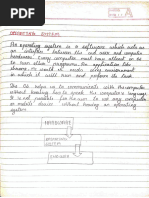 OPERATING SYSTEM
An operating system is a software which acts as
an interface between the end user and computer
hardware. Every computer must have atleast on OS
to run other programs. An application like
chrome, MS could it needs some environment
in which it will run and perform its task.
The OS helps us to communicate with the computer
without knowing how to speak the computer's language.
It is not possible for the user to use any computer
or mobile device without having an operating
system.
OPERATING
SYSTEM